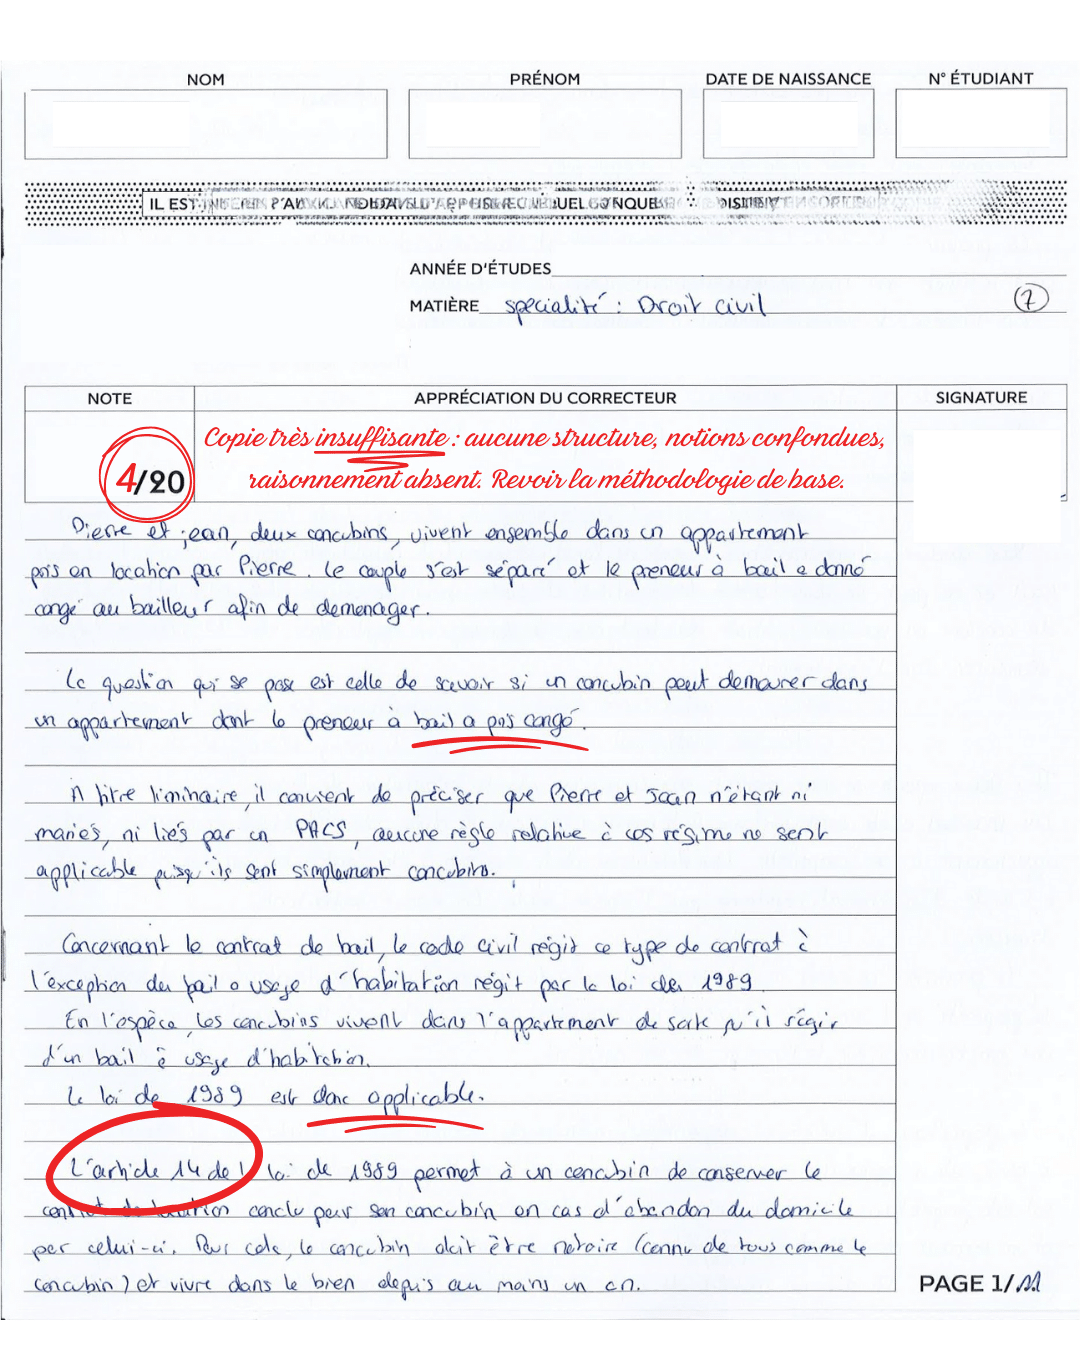 NOM PRÉNOM DATE DE NAISSANCE N° ÉTUDIANT
IL EST
ANNÉE D'ÉTUDES
MATIÈRE spécialité : Droit civil 7
NOTE APPRÉCIATION DU CORRECTEUR SIGNATURE
Copie très insuffisante : aucune structure, notions confondues,
4/20 raisonnement absent. Revoir la méthodologie de base.
Pierre et jean, deux concubins, vivent ensemble dans un appartement
pris en location par Pierre. Le couple s'est séparé et le preneur à bail a donné
congé au bailleur afin de demenager.
La question qui se pose est celle de savoir si un concubin peut demeurer dans
un appartement dont le preneur à bail a pris congé.
A titre liminaire, il convient de préciser que Pierre et Jean n'étant ni
mariés, ni liés par un PACS, aucune règle relative à ces régime ne sont
applicable puisqu'ils sont simplement concubins.
Concernant le contrat de bail, le code civil régit ce type de contrat à
l'exception du bail a usage d'habitation régit par la loi de 1989
En l'espèce, les concubins vivent dans l'appartement de sorte qu'il s'agit
d'un bail à usage d'habitation.
La loi de 1989 est donc applicable.
L'article 14 de loi de 1989 permet à un concubin de conserver le
contrat de location conclu par son concubin en cas d'abandon du domicile
par celui-ci. Pour cela, le concubin doit être notoire (connu de tous comme le
concubin) et vivre dans le bien depuis au moins un an.
PAGE 1/11